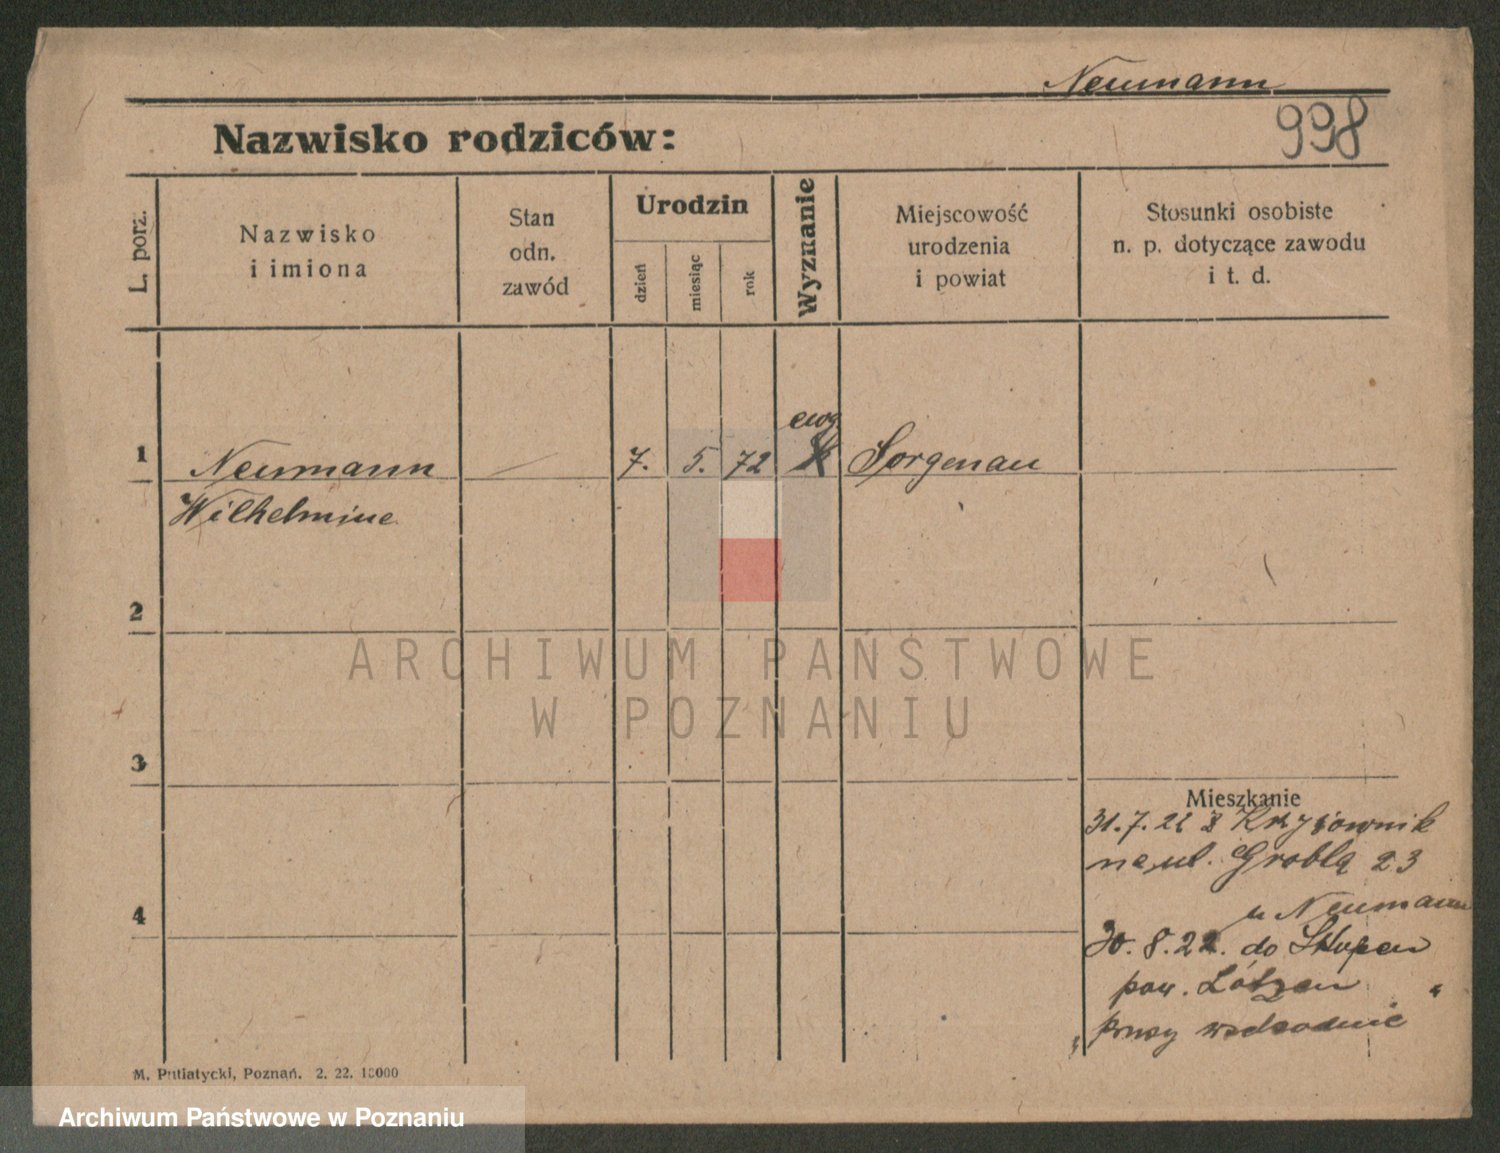 Neumann
998
Nazwisko rodziców:
L. porz.
Nazwisko
i imiona
Stan
odn.
zawód
Urodzin
dzień
miesiąc
rok
Wyznanie
Miejscowość
urodzenia
i powiat
Stosunki osobiste
n. p. dotyczące zawodu
i t. d.
ewg
1 Neumann 7. 5. 72 k Sorgenau
Wilhelmine
2
ARCHIWUM PAŃSTWOWE
W POZNANIU
3
Mieszkanie
31.7.22 z Krzyżownik
na ul. Grobla 23
4
u Neumann
30.8.22. do
pow. Lötzen
prusy wschodnie
M. Putiatycki, Poznań. 2. 22. 10000
Archiwum Państwowe w Poznaniu